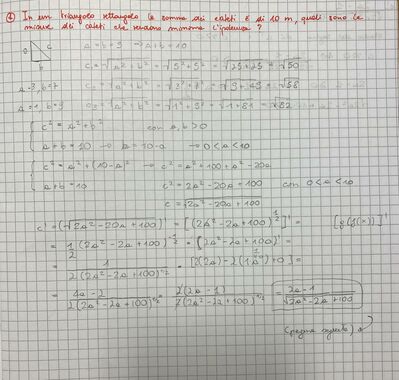 ① In un triangolo rettangolo la somma dei cateti è di 10 m, quali sono le
misure dei cateti che rendono minima l'ipotenusa?
a = b = 5 → a + b = 10
c₁ = √a² + b² = √5² + 5² = √25 + 25 = √50
a = 3, b = 7 c₂ = √a² + b² = √3² + 7² = √9 + 49 = √58
a = 1, b = 9 c₃ = √a² + b² = √1² + 9² = √1 + 81 = √82
{ c² = a² + b² con a, b > 0
a + b = 10 → b = 10 - a → 0 < a < 10
{ c² = a² + (10 - a)² → c² = a² + 100 + a² - 20a
a + b = 10 c² = 2a² - 20a + 100 con 0 < a < 10
c = √2a² - 20a + 100
c' = (√2a² - 20a + 100)' = [(2a² - 2a + 100)^1/2]' = [g(f(x))]'
= 1/2 (2a² - 2a + 100)^-1/2 · (2a² - 2a + 100)' =
= 1 / 2(2a² - 2a + 100)^1/2 · [2(2a) - 2(1a^0) + 0] =
= 4a - 2 / 2(2a² - 2a + 100)^1/2 = 2(2a - 1) / 2(2a² - 2a + 100)^1/2 = 2a - 1 / √2a² - 2a + 100
(pagina seguente)